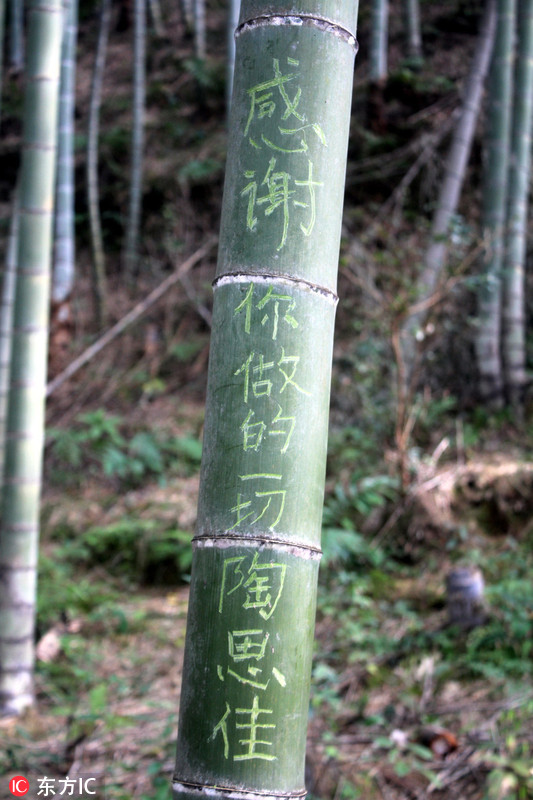 感谢
你做的一切
陶恩佳
IC 东方IC